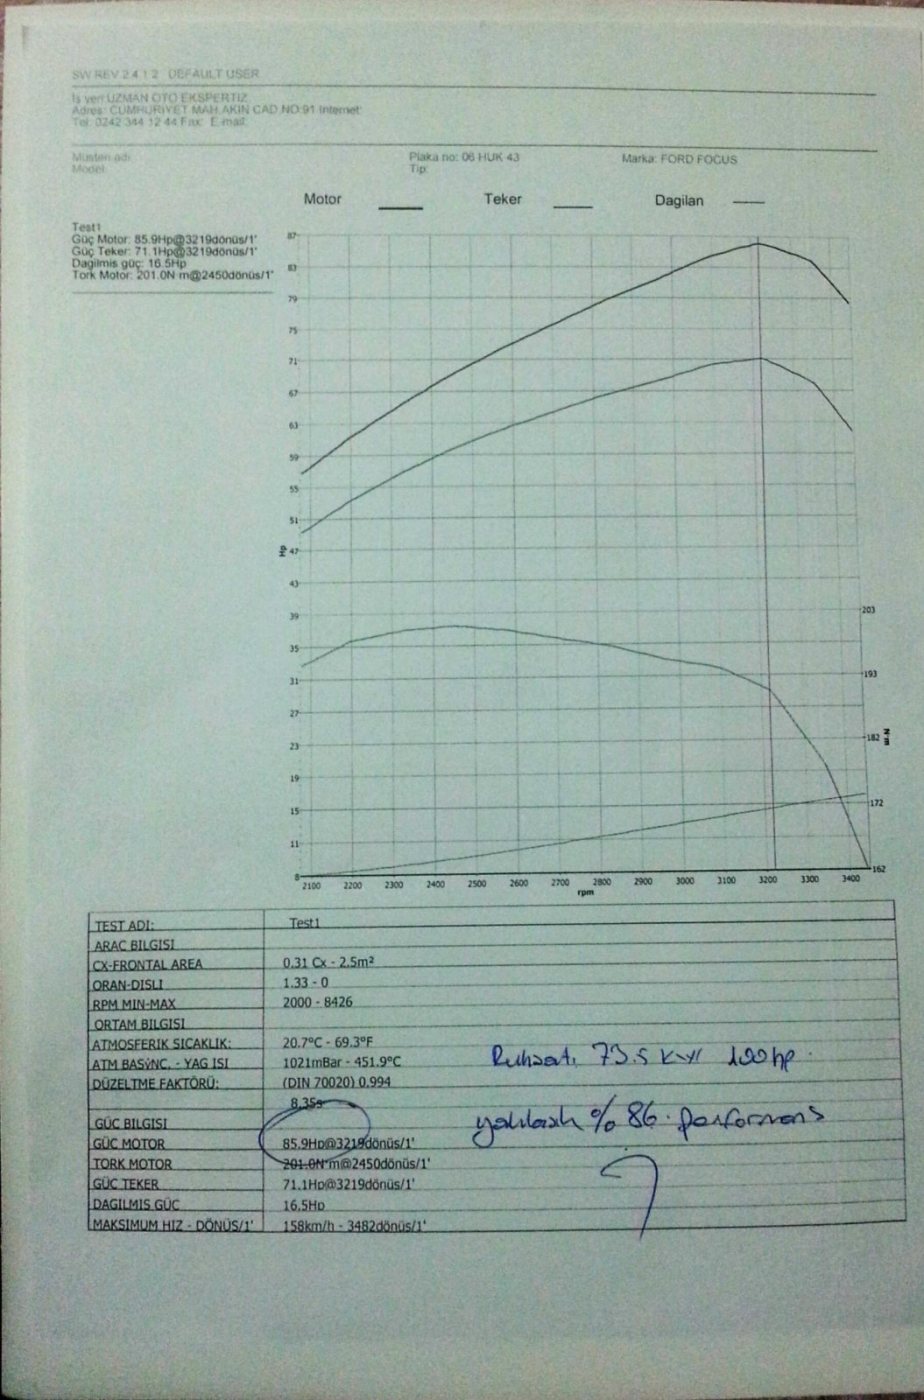 SW REV 2.4.1.2 DEFAULT USER
İs yeri UZMAN OTO EKSPERTIZ
Adres: CUMHURIYET MAH AKIN CAD NO 91 Internet:
Tel: 0242 344 12 44 Fax: E-mail:
Müsteri adı Plaka no: 06 HUK 43 Marka: FORD FOCUS
Model: Tip:
Motor Teker Dagilan
Test1
Güç Motor: 85.9Hp@3219dönüs/1'
Güç Teker: 71.1Hp@3219dönüs/1'
Dagilmis güç: 16.5Hp
Tork Motor: 201.0N m@2450dönüs/1'
87
83
79
75
71
67
63
59
55
51
Hp
47
43
39
203
35
31
193
27
23
182
N.m
19
15
172
11
8
162
2100 2200 2300 2400 2500 2600 2700 2800 2900 3000 3100 3200 3300 3400
rpm
TEST ADI: Test1
ARAC BILGISI
CX-FRONTAL AREA 0.31 Cx - 2.5m²
ORAN-DISLI 1.33 - 0
RPM MIN-MAX 2000 - 8426
ORTAM BILGISI
ATMOSFERIK SICAKLIK: 20.7°C - 69.3°F
ATM BASıNC. - YAG ISI 1021mBar - 451.9°C
DÜZELTME FAKTÖRÜ: (DIN 70020) 0.994
8.35s
GÜC BILGISI
GÜC MOTOR 85.9Hp@3219dönüs/1'
TORK MOTOR 201.0N m@2450dönüs/1'
GÜC TEKER 71.1Hp@3219dönüs/1'
DAGILMIS GÜC 16.5Hp
MAKSIMUM HIZ - DÖNÜS/1' 158km/h - 3482dönüs/1'
Ruhsatı 73.5 KW 100hp
yaklasık %86 performans